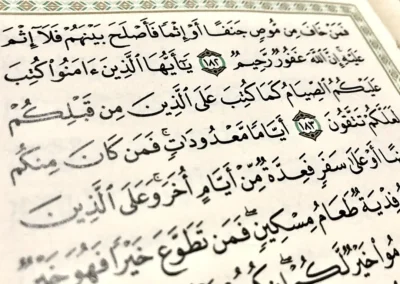 فَمَنْ خَافَ مِن مُّوصٍ جَنَفًا أَوْ إِثْمًا فَأَصْلَحَ بَيْنَهُمْ فَلَآ إِثْمَ
عَلَيْهِ إِنَّ ٱللَّهَ غَفُورٌ رَّحِيمٌ ١٨٢ يَٰٓأَيُّهَا ٱلَّذِينَ ءَامَنُوا۟ كُتِبَ
عَلَيْكُمُ ٱلصِّيَامُ كَمَا كُتِبَ عَلَى ٱلَّذِينَ مِن قَبْلِكُمْ
لَعَلَّكُمْ تَتَّقُونَ ١٨٣ أَيَّامًا مَّعْدُودَٰتٍ ۚ فَمَن كَانَ مِنكُم
أَوْ عَلَىٰ سَفَرٍ فَعِدَّةٌ مِّنْ أَيَّامٍ أُخَرَ ۚ وَعَلَى ٱلَّذِينَ
فِدْيَةٌ طَعَامُ مِسْكِينٍ ۖ فَمَن تَطَوَّعَ خَيْرًا فَهُوَ خَيْرٌ
خَيْرٌ لَّكُمْ ۖ